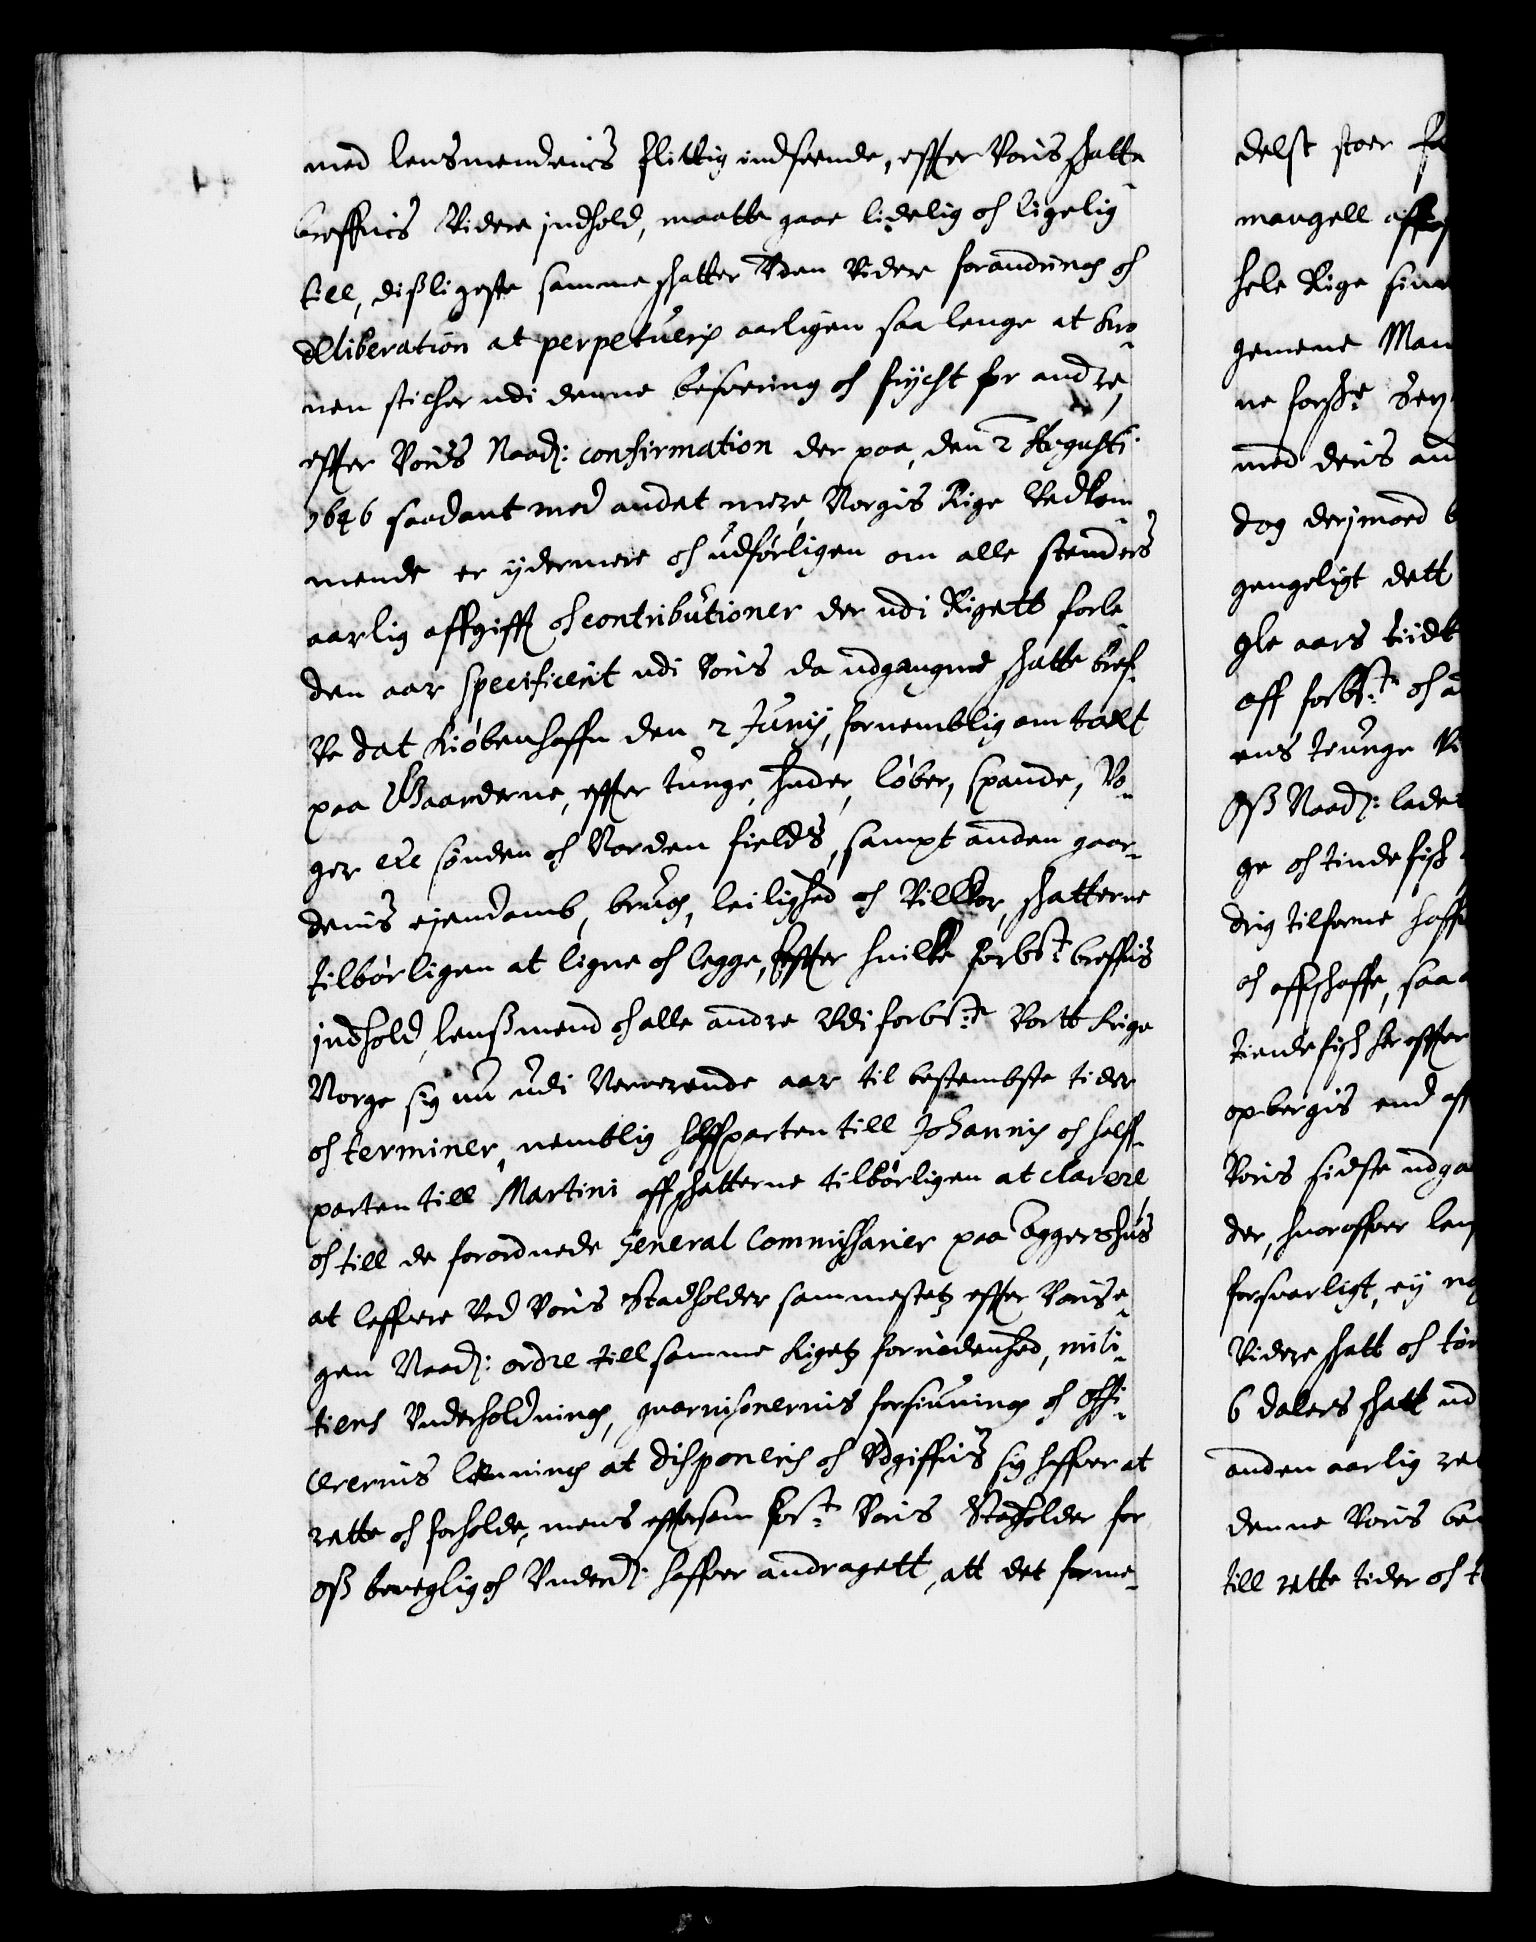 med lensmendenis flittig indseende, effter Voris skatte
breffuis Videre indhold, maatte gaae lidelig och ligelig
till, disligeste samme skatter Uden Videre forandring och
deliberation at perpetueris aarligen saa lenge at Kro¬
nen sticher udi denne besvering och frijcht for andre,
effter Voris Naad: confirmation der paa, den 2 Augusti
1646 saadant med andet mere, Norgis Rige Vedkom¬
mende er ijdermere och udførligen om alle stenders
aarlig affgifft och contributioner der udi Rigett forle¬
den aar specificerit udi Voris da udgangne skatte bref¬
Ve dat Kiøbenhaffn den 2 Junij, fornemblig om tælt
paa Gaarderne, effter tunge, huder, løber, spande, Vo¬
ger etc sønden och Norden fields, sampt anden gaar¬
denis ejendomb, brug, leilighed och Villkor, skatterne
tilbørligen at ligne och legge, effter huilke forbet breffuis
indhold, lensmend och alle andre Udi forbete Vortt Rige
Norge sig nu udi Nerverende aar til bestembste tider
och terminer, nemblig halffparten till Johannis och halff¬
parten till Martini aff skatterne tilbørligen at clarere
och till de forordnede General Commissarier paa Aggershus
at leffvere Ved Voris Stadholder sammestetz effter Voris e¬
gen Naad: ordre till samme Rigetz fornødenhed, mili¬
tiens Underholdning, guarnisonernis forsiuning och offi¬
cerernis lønning at disponeris och Udgiffuis sig haffver at
rette och forholde, mens effttersom forte Voris Stadholder for
oss beveglig och Underd: haffver andragett, att det forme¬
delst stoer
mangell aff
hele Rige
gemene Man
ne forsk:
med deris an
dog derjmoed
gengeligt dett
gle aars tiidt
aff forbte och
ens tounge
Oss Naad: lade
ge och tinde fisk
drig tilforne haffu
och affskaffe, saa
tiende fisk her effter
opbergis end aff
Voris sidste udga
der, huoroffver len
forsvarligt, ey
Videre skatt och
6 dalers skatt ud
anden aarlig
denne Voris be
till rette tider och